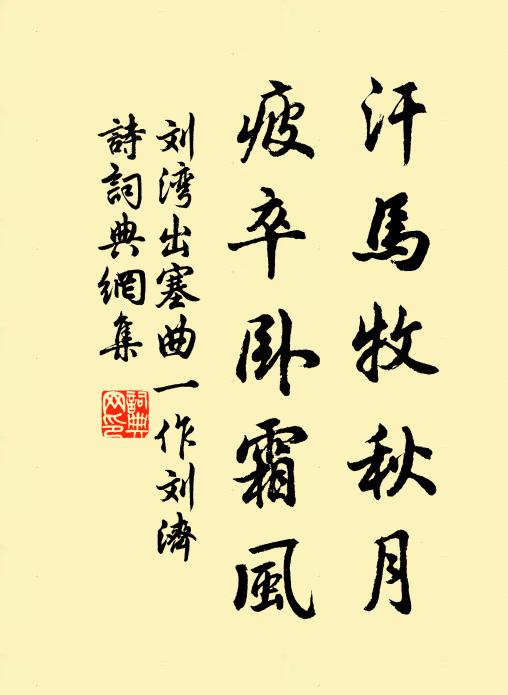 汗馬牧秋月
疲卒卧霜風
刘湾出塞曲一作刘濟
詩詞典網集
詞典
网印